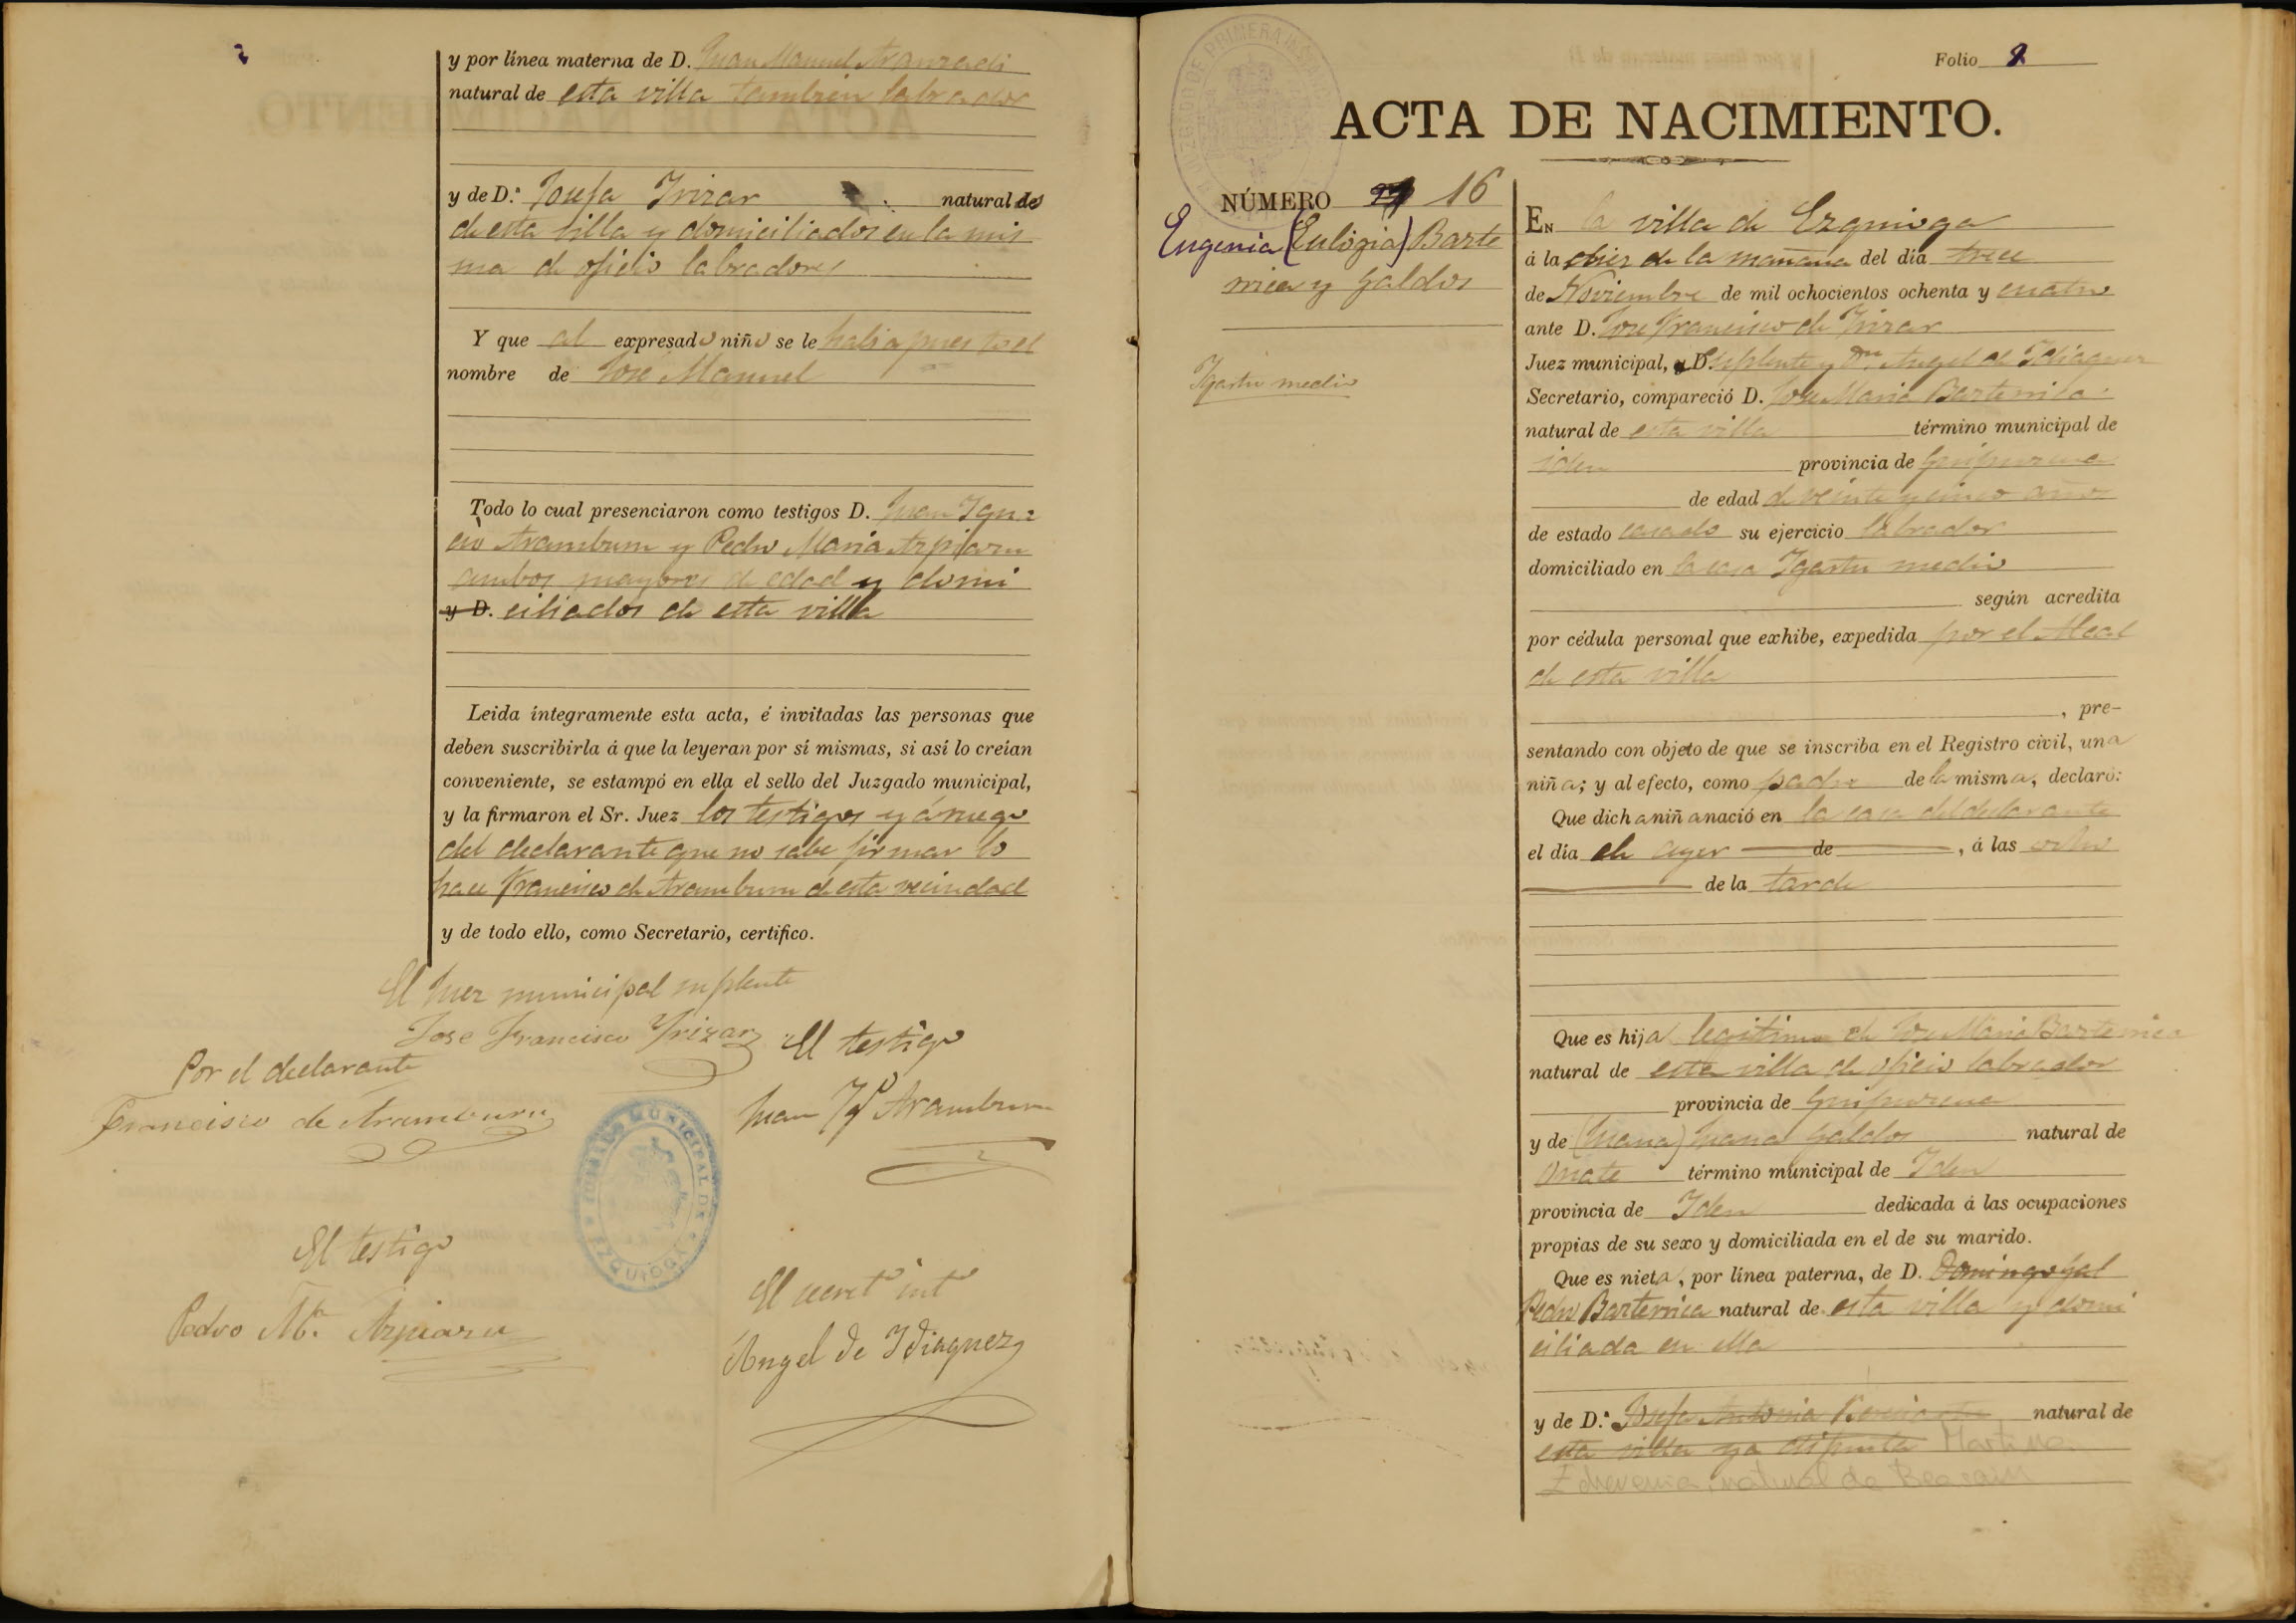 y por línea materna de D. Juan Manuel Aranzadi
natural de esta villa tambien labrador
y de D.ª Josefa Irizar natural de
de esta villa y domiciliados en la mis
ma de oficio labradores
Y que al expresado niño se le habia puesto el
nombre de José Manuel
Todo lo cual presenciaron como testigos D. Juan Igna
cio Aramburu y Pedro Maria Azpiazu
ambos mayores de edad y domi
y D. ciliados de esta villa
Leida íntegramente esta acta, é invitadas las personas que
deben suscribirla á que la leyeran por sí mismas, si así lo creían
conveniente, se estampó en ella el sello del Juzgado municipal,
y la firmaron el Sr. Juez los testigos y á ruego
del declarante que no sabe firmar lo
hace Francisco de Aramburu de esta vecindad
y de todo ello, como Secretario, certifico.
El Juez municipal suplente
Jose Francisco Yrizar
El testigo
Por el declarante
Juan Ygº Aramburu
Francisco de Aramburu
MUNICIPAL DE
EZQUIOGA
El testigo
El secretº intº
Pedro Mª. Azpiazu
Angel de Ydiaquez
Folio 2
JUZGADO DE PRIMERA INSTANCIA
ACTA DE NACIMIENTO.
NÚMERO 16
Eugenia (Eulogia) Barte
rrica y Galdos
Igartu medio
EN la villa de Ezquioga
á la diez de la mañana del día trece
de Noviembre de mil ochocientos ochenta y cuatro
ante D. Jose Francisco de Irizar
Juez municipal, y D. Suplente y Dn. Angel de Idiaquez
Secretario, compareció D. Jose Maria Barterrica
natural de esta villa término municipal de
iden provincia de Guipuzcoa
de edad de veinte y cinco años
de estado casado su ejercicio labrador
domiciliado en la casa Igartu medio
según acredita
por cédula personal que exhibe, expedida por el Alcal
de esta villa
, pre-
sentando con objeto de que se inscriba en el Registro civil, una
niña; y al efecto, como padre de la misma, declaró:
Que dicha niña nació en la casa del declarante
el día de ayer de , á las ocho
de la tarde
Que es hija legitima de Jose Maria Barterrica
natural de esta villa de oficio labrador
provincia de Guipuzcoa
y de (Juana) Juana Galdos natural de
Oñate término municipal de Iden
provincia de Iden dedicada á las ocupaciones
propias de su sexo y domiciliada en el de su marido.
Que es nieta, por línea paterna, de D. Domingo Gal
Pedro Barterrica natural de esta villa y domi
ciliada en ella
y de D.ª Josefa Antonia natural de
esta villa ya difunta Martina
Echeverria, natural de Beasain